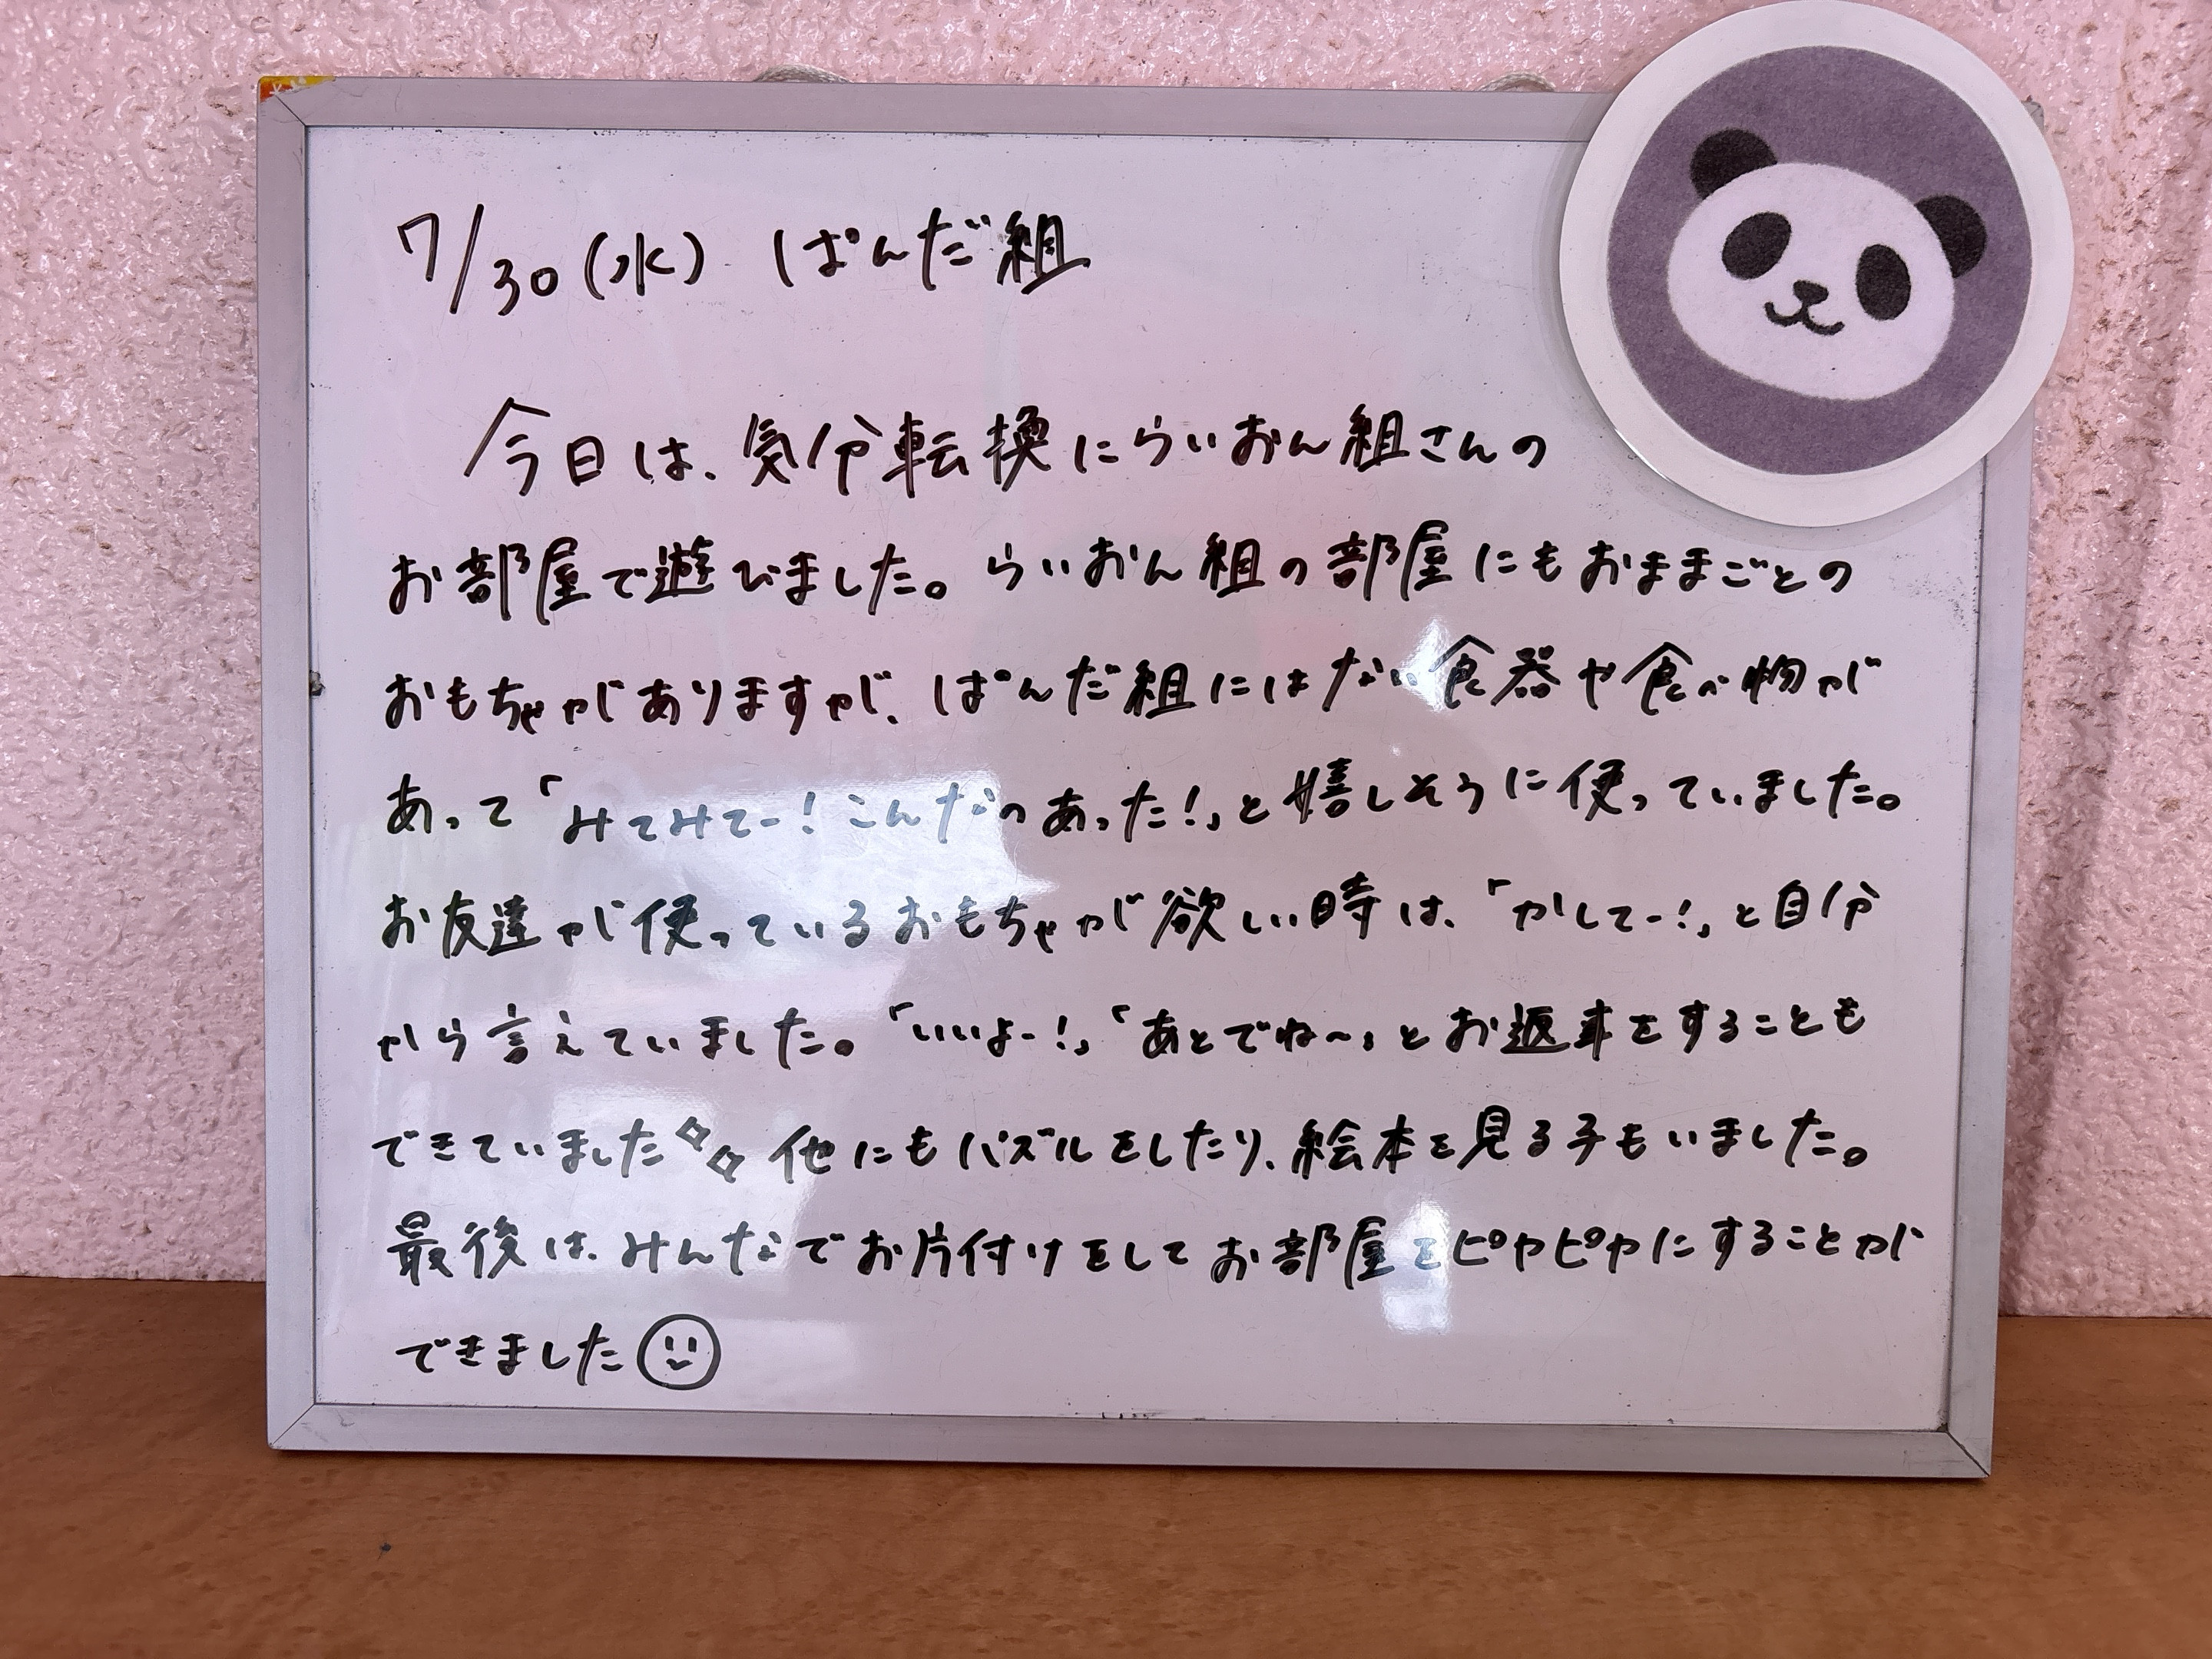 7/30(水) ぱんだ組
今日は、気分転換にらいおん組さんの
お部屋で遊びました。らいおん組の部屋にもおままごとの
おもちゃがありますが、ぱんだ組にはない食器や食べ物が
あって「みてみてー!こんなのあった!」と嬉しそうに使っていました。
お友達が使っているおもちゃが欲しい時は、「かしてー!」と自分
から言えていました。「いいよー!」「あとでね〜」とお返事をすることも
できていました 他にもパズルをしたり、絵本を見る子もいました。
最後は、みんなでお片付けをしてお部屋をピカピカにすることが
できました